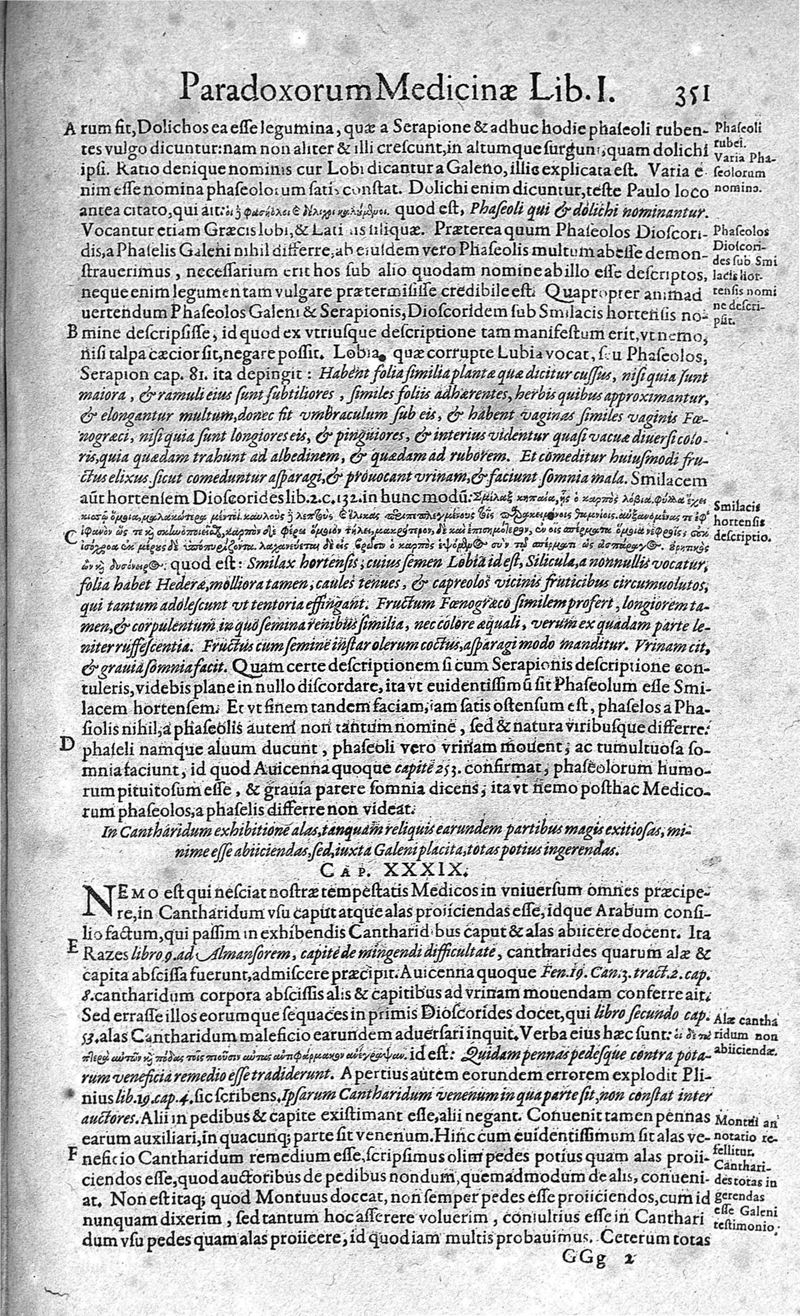 Paradoxorum Medicinæ Lib. I. 351
A rum sit, Dolichos ea esse legumina, quæ a Serapione & adhuc hodie phaseoli ruben-
tes vulgo dicuntur: nam non aliter & illi crescunt, in altumque surgunt, quam dolichi
ipsi. Ratio denique nominis cur Lobi dicantur a Galeno, illic explicata est. Varia e
nim esse nomina phaseolorum satis constat. Dolichi enim dicuntur, teste Paulo loco
antea citato, qui ait: quod est, Phaseoli qui & dolichi nominantur.
Vocantur etiam Græcis lobi, & Latinis siliquæ. Præterea quum Phaseolos Dioscori-
dis, a Phaselis Galeni nihil differre, ab eiusdem vero Phaseolis multum abesse demon-
strauerimus, necessarium erit hos sub alio quodam nomine ab illo esse descriptos,
neque enim legumen tam vulgare prætermisisse credibile est. Quapropter animad
uertendum Phaseolos Galeni & Serapionis, Dioscoridem sub Smilacis hortensis no-
B mine descripsisse, id quod ex vtriusque descriptione tam manifestum erit, vt nemo,
nisi talpa cæcior sit, negare possit. Lobia, quæ corrupte Lubia vocat, seu Phaseolos,
Serapion cap. 81. ita depingit: Habent folia similia plantæ quæ dicitur cussus, nisi quia sunt
maiora, & ramuli eius sunt subtiliores, similes foliis adhærentes, herbis quibus approximantur,
& elongantur multum, donec fit vmbraculum sub eis, & habent vaginas similes vaginis Fœ-
nogræci, nisi quia sunt longiores eis, & pinguiores, & interius videntur quasi vacuæ diuersi colo-
ris, quia quædam trahunt ad albedinem, & quædam ad ruborem. Et comeditur huiusmodi fru-
ctus elixus sicut comeduntur asparagi, & prouocant vrinam, & faciunt somnia mala. Smilacem
aūt hortensem Dioscorides lib. 2. c. 132. in hunc modū: Σμίλαξ κηπαία, ἧς ὁ καρπὸς λόβια, φύλλα ἔχει
C
quod est: Smilax hortensis; cuius semen Lobia id est, Silicula, a nonnullis vocatur,
folia habet Hederæ, molliora tamen; caules tenues, & capreolos vicinis fruticibus circumuolutos,
qui tantum adolescunt vt tentoria effingant. Fructum Fœnogræco similem profert, longiorem ta-
men, & corpulentum in quo semina renibus similia, nec colore æquali, verum ex quadam parte le-
niter ruffescentia. Fructus cum semine instar olerum coctus, asparagi modo manditur. Vrinam cit,
& grauia somnia facit. Quam certe descriptionem si cum Serapionis descriptione con-
tuleris, videbis plane in nullo discordare, ita vt euidentissimū sit Phaseolum esse Smi-
lacem hortensem. Et vt finem tandem faciam, iam satis ostensum est, phaselos a Pha-
siolis nihil, a phaseolis autem non tantum nomine, sed & natura viribusque differre:
D phaseli namque aluum ducunt, phaseoli vero vrinam mouent, ac tumultuosa so-
mnia faciunt, id quod Auicenna quoque capite 253. confirmat, phaseolorum humo-
rum pituitosum esse, & grauia parere somnia dicens, ita vt nemo posthac Medico-
rum phaseolos, a phaselis differre non videat.
In Cantharidum exhibitione alas, tanquam reliquis earundem partibus magis exitiosas, mi-
nime esse abiiciendas, sed, iuxta Galeni placita, totas potius ingerendas.
CAP. XXXIX.
NEMO est qui nesciat nostræ tempestatis Medicos in vniuersum omnes præcipe-
re, in Cantharidum vsu caput atque alas proiiciendas esse, idque Arabum consi-
lio factum, qui passim in exhibendis Cantharidibus caput & alas abiicere docent. Ita
E Razes libro 9. ad Almansorem, capite de mingendi difficultate, cantharides quarum alæ &
capita abscissa fuerunt, admiscere præcipit. Auicenna quoque Fen. 19. Can. 3. tract. 2. cap.
8. cantharidum corpora abscissis alis & capitibus ad vrinam mouendam conferre ait.
Sed errasse illos eorumque sequaces in primis Dioscorides docet, qui libro secundo cap.
53. alas Cantharidum maleficio earundem aduersari inquit. Verba eius hæc sunt:
id est: Quidam pennas pedesque contra pota-
rum veneficia remedio esse tradiderunt. Apertius autem eorundem errorem explodit Pli-
nius lib. 19. cap. 4. sic scribens, Ipsarum Cantharidum venenum in qua parte sit, non constat inter
auctores. Alii in pedibus & capite existimant esse, alii negant. Conuenit tamen pennas
earum auxiliari, in quacunq; parte sit venenum. Hinc cum euidentissimum sit alas ve-
F neficio Cantharidum remedium esse, scripsimus olim pedes potius quam alas proii-
ciendos esse, quod auctoribus de pedibus nondum, quemadmodum de alis, conueni-
at. Non est itaq; quod Montuus doceat, non semper pedes esse proiiciendos, cum id
nunquam dixerim, sed tantum hoc asserere voluerim, consultius esse in Canthari
dum vsu pedes quam alas proiicere, id quod iam multis probauimus. Ceterum totas
GGg 2
Phaseoli
rubei.
Varia Pha-
seolorum
nomina.
Phaseolos
Dioscori-
des sub Smi
lacis hor-
tensis nomi
ne descri-
psit.
Smilacis
hortensis
descriptio.
Alæ cantha
ridum non
abiiciendæ.
Montui an
notatio re-
fellitur.
Canthari-
des totas in
gerendas
esse Galeni
testimonio.